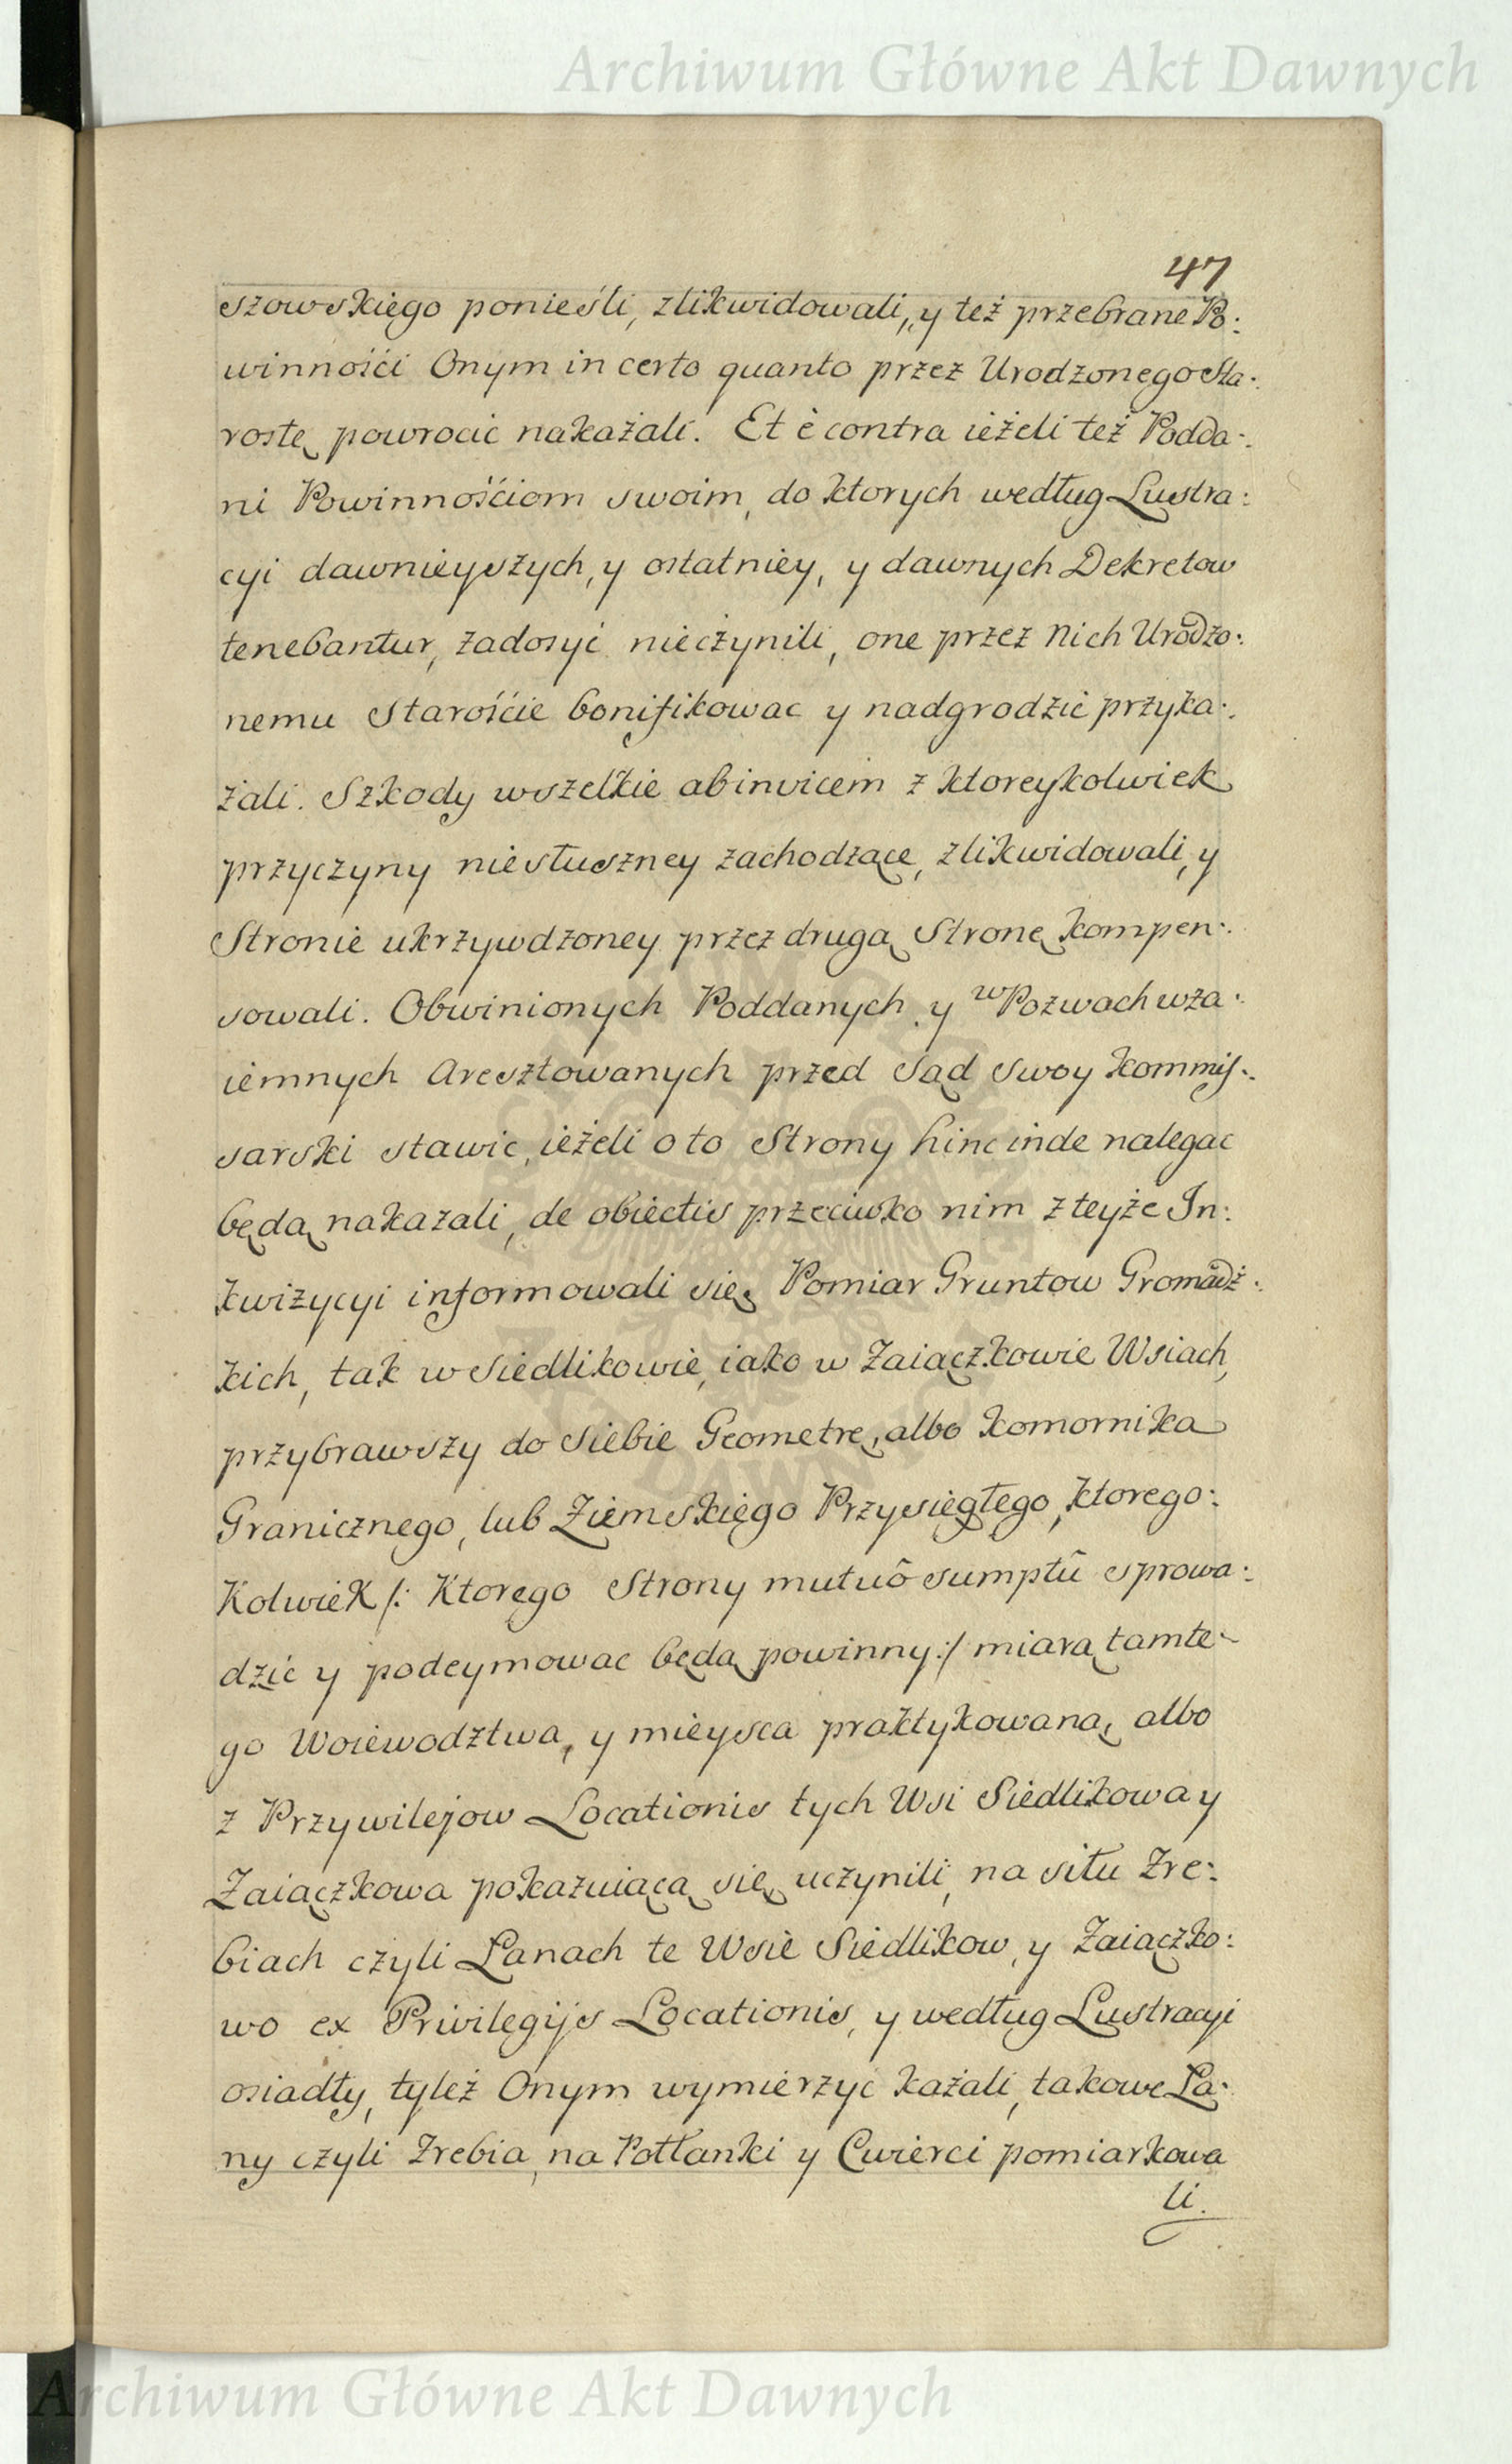 Archiwum Główne Akt Dawnych
47
szowskiego ponieśli, zlikwidowali, y też przebrane Po:
winności Onym in certo quanto przez Urodzonego Sta:
rostę powrocić nakażali. Et è contra ieżeli też Podda:
ni Powinnościom swoim, do ktorych według Lustra:
cyi dawnieyszych, y ostatniey, y dawnych Dekretow
tenebantur, zadosyć nieczynili, one przez Nich Urodzo:
nemu Starościе bonifikowac y nadgrodzić przyka:
żali. Szkody wszelkie abinvicem z ktoreykolwiek
przyczyny niesłuszney zachodzące, zlikwidowali, y
Stronie ukrzywdzoney przez drugą Stronę kompen:
sowali. Obwinionych Poddanych y w Pozwach wza:
iemnych Aresztowanych przed Sąd Swoy Kommis:
sarski stawić, ieżeli o to Strony hinc inde nalegac
będą nakazali, de obiectis przeciwko nim z teyże In:
kwizycyi informowali się. Pomiar Gruntow Gromadz:
kich, tak w Siedlikowie, iako w Zaiączkowie Wsiach,
przybrawszy do Siebie Geometrę, albo Komornika
Granicznego, lub Ziemskięgo Przysięgłego, ktorego:
Kolwiek /: Ktorego Strony mutuô sumptû sprowa:
dzić y podeymowac będą powinny :/ miarą tamte-
go Woiewodztwa, y mieysca praktykowaną, albo
z Przywilejow Locationis tych Wsi Siedlikowa y
Zaiączkowa pokazuiącą się uczynili, na situ Zre:
biach czyli Łanach te Wsie Siedlikow, y Zaiączko:
wo ex Privilegijs Locationis, y według Lustracyi
osiadły, tyleż Onym wymierzyć każali, takowe Ła:
ny czyli Zrebia, na Połłanki y Cwierci pomiarkowa
li.
Archiwum Główne Akt Dawnych